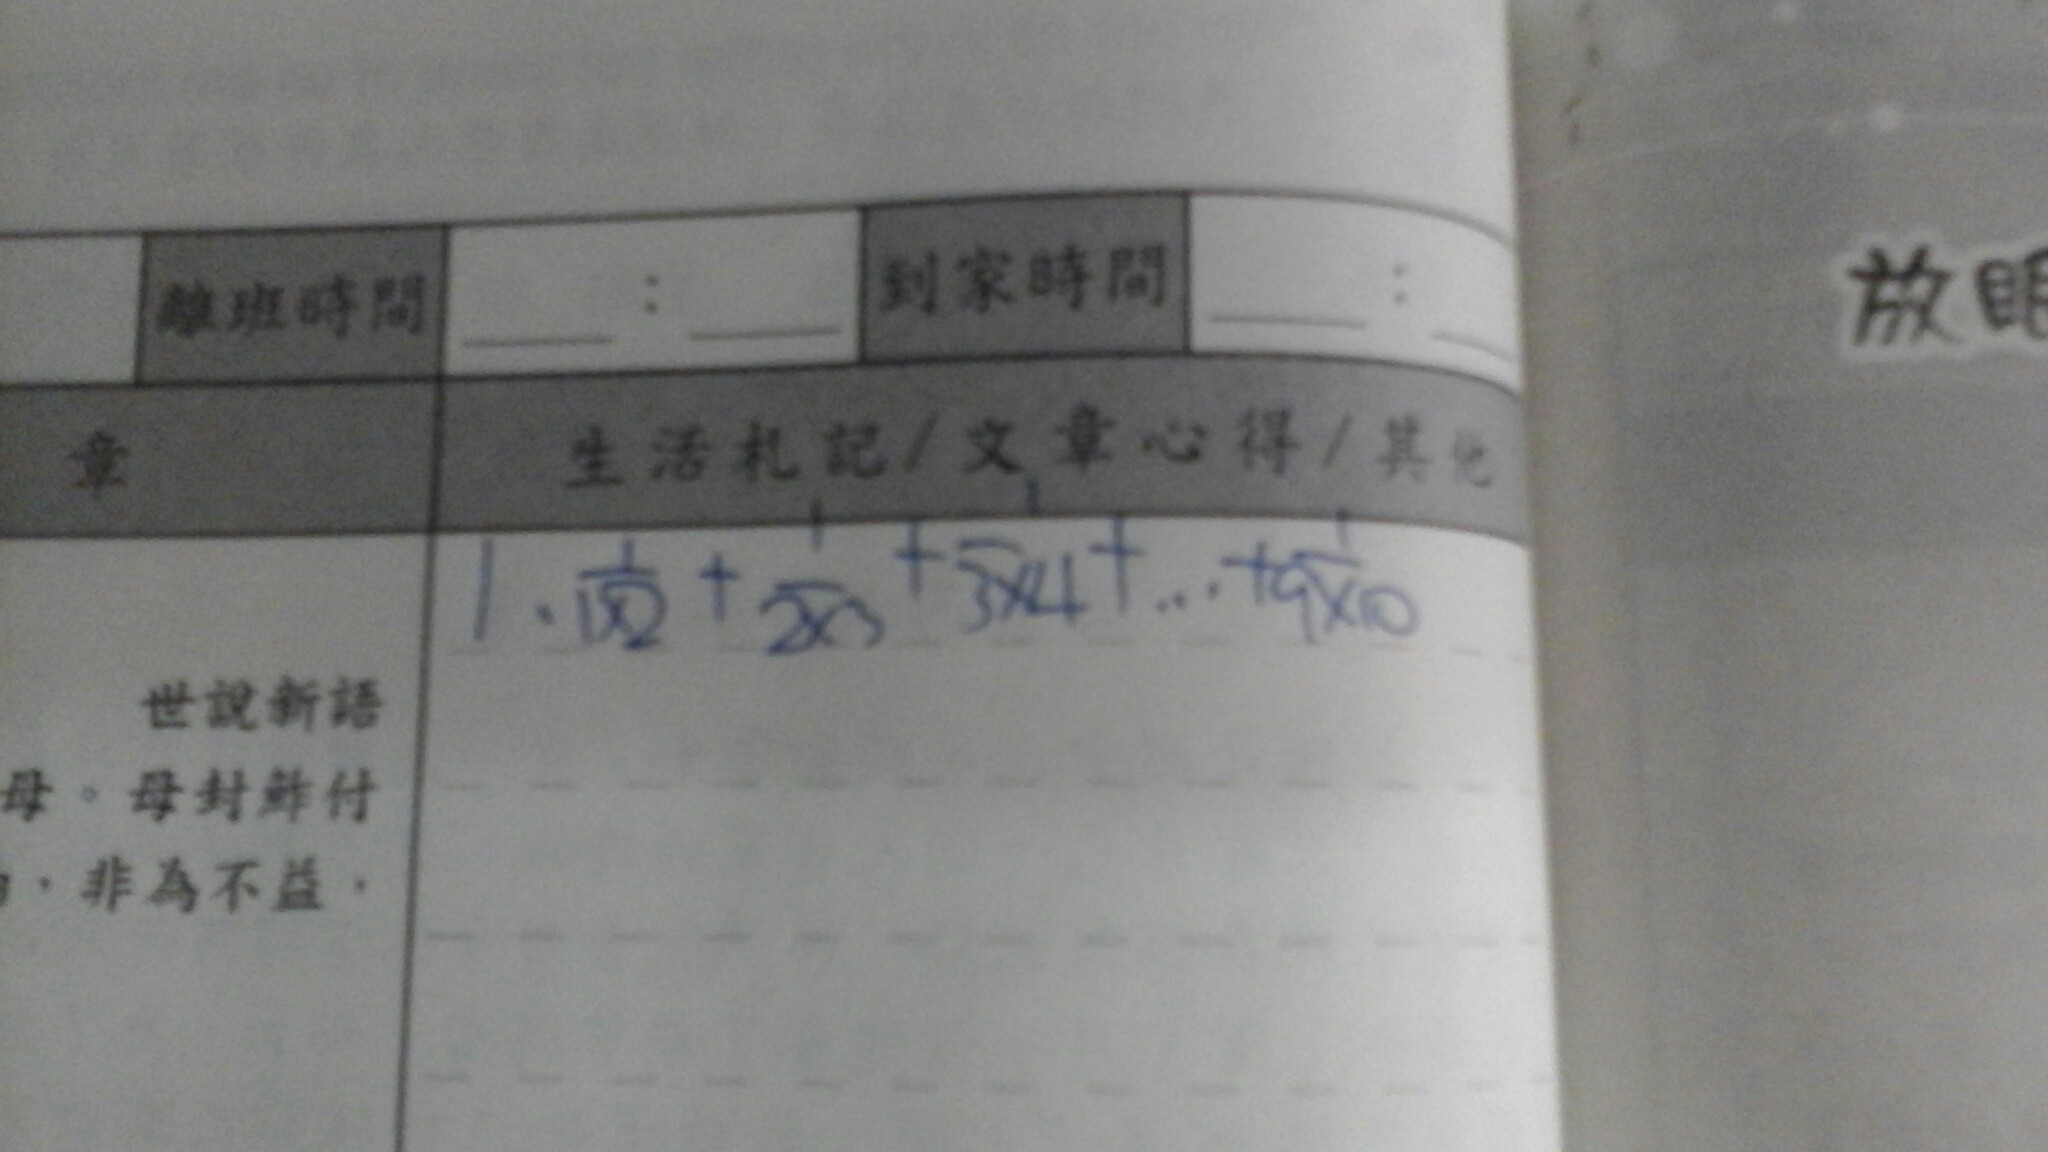 離班時間 ___ : ___ 到家時間 ___ : ___
章 生活札記/文章心得/其他
1. 1/1×2 + 1/2×3 + 1/3×4 + ... + 1/9×10
世說新語
母。母封鮓付
，非為不益，
放眼